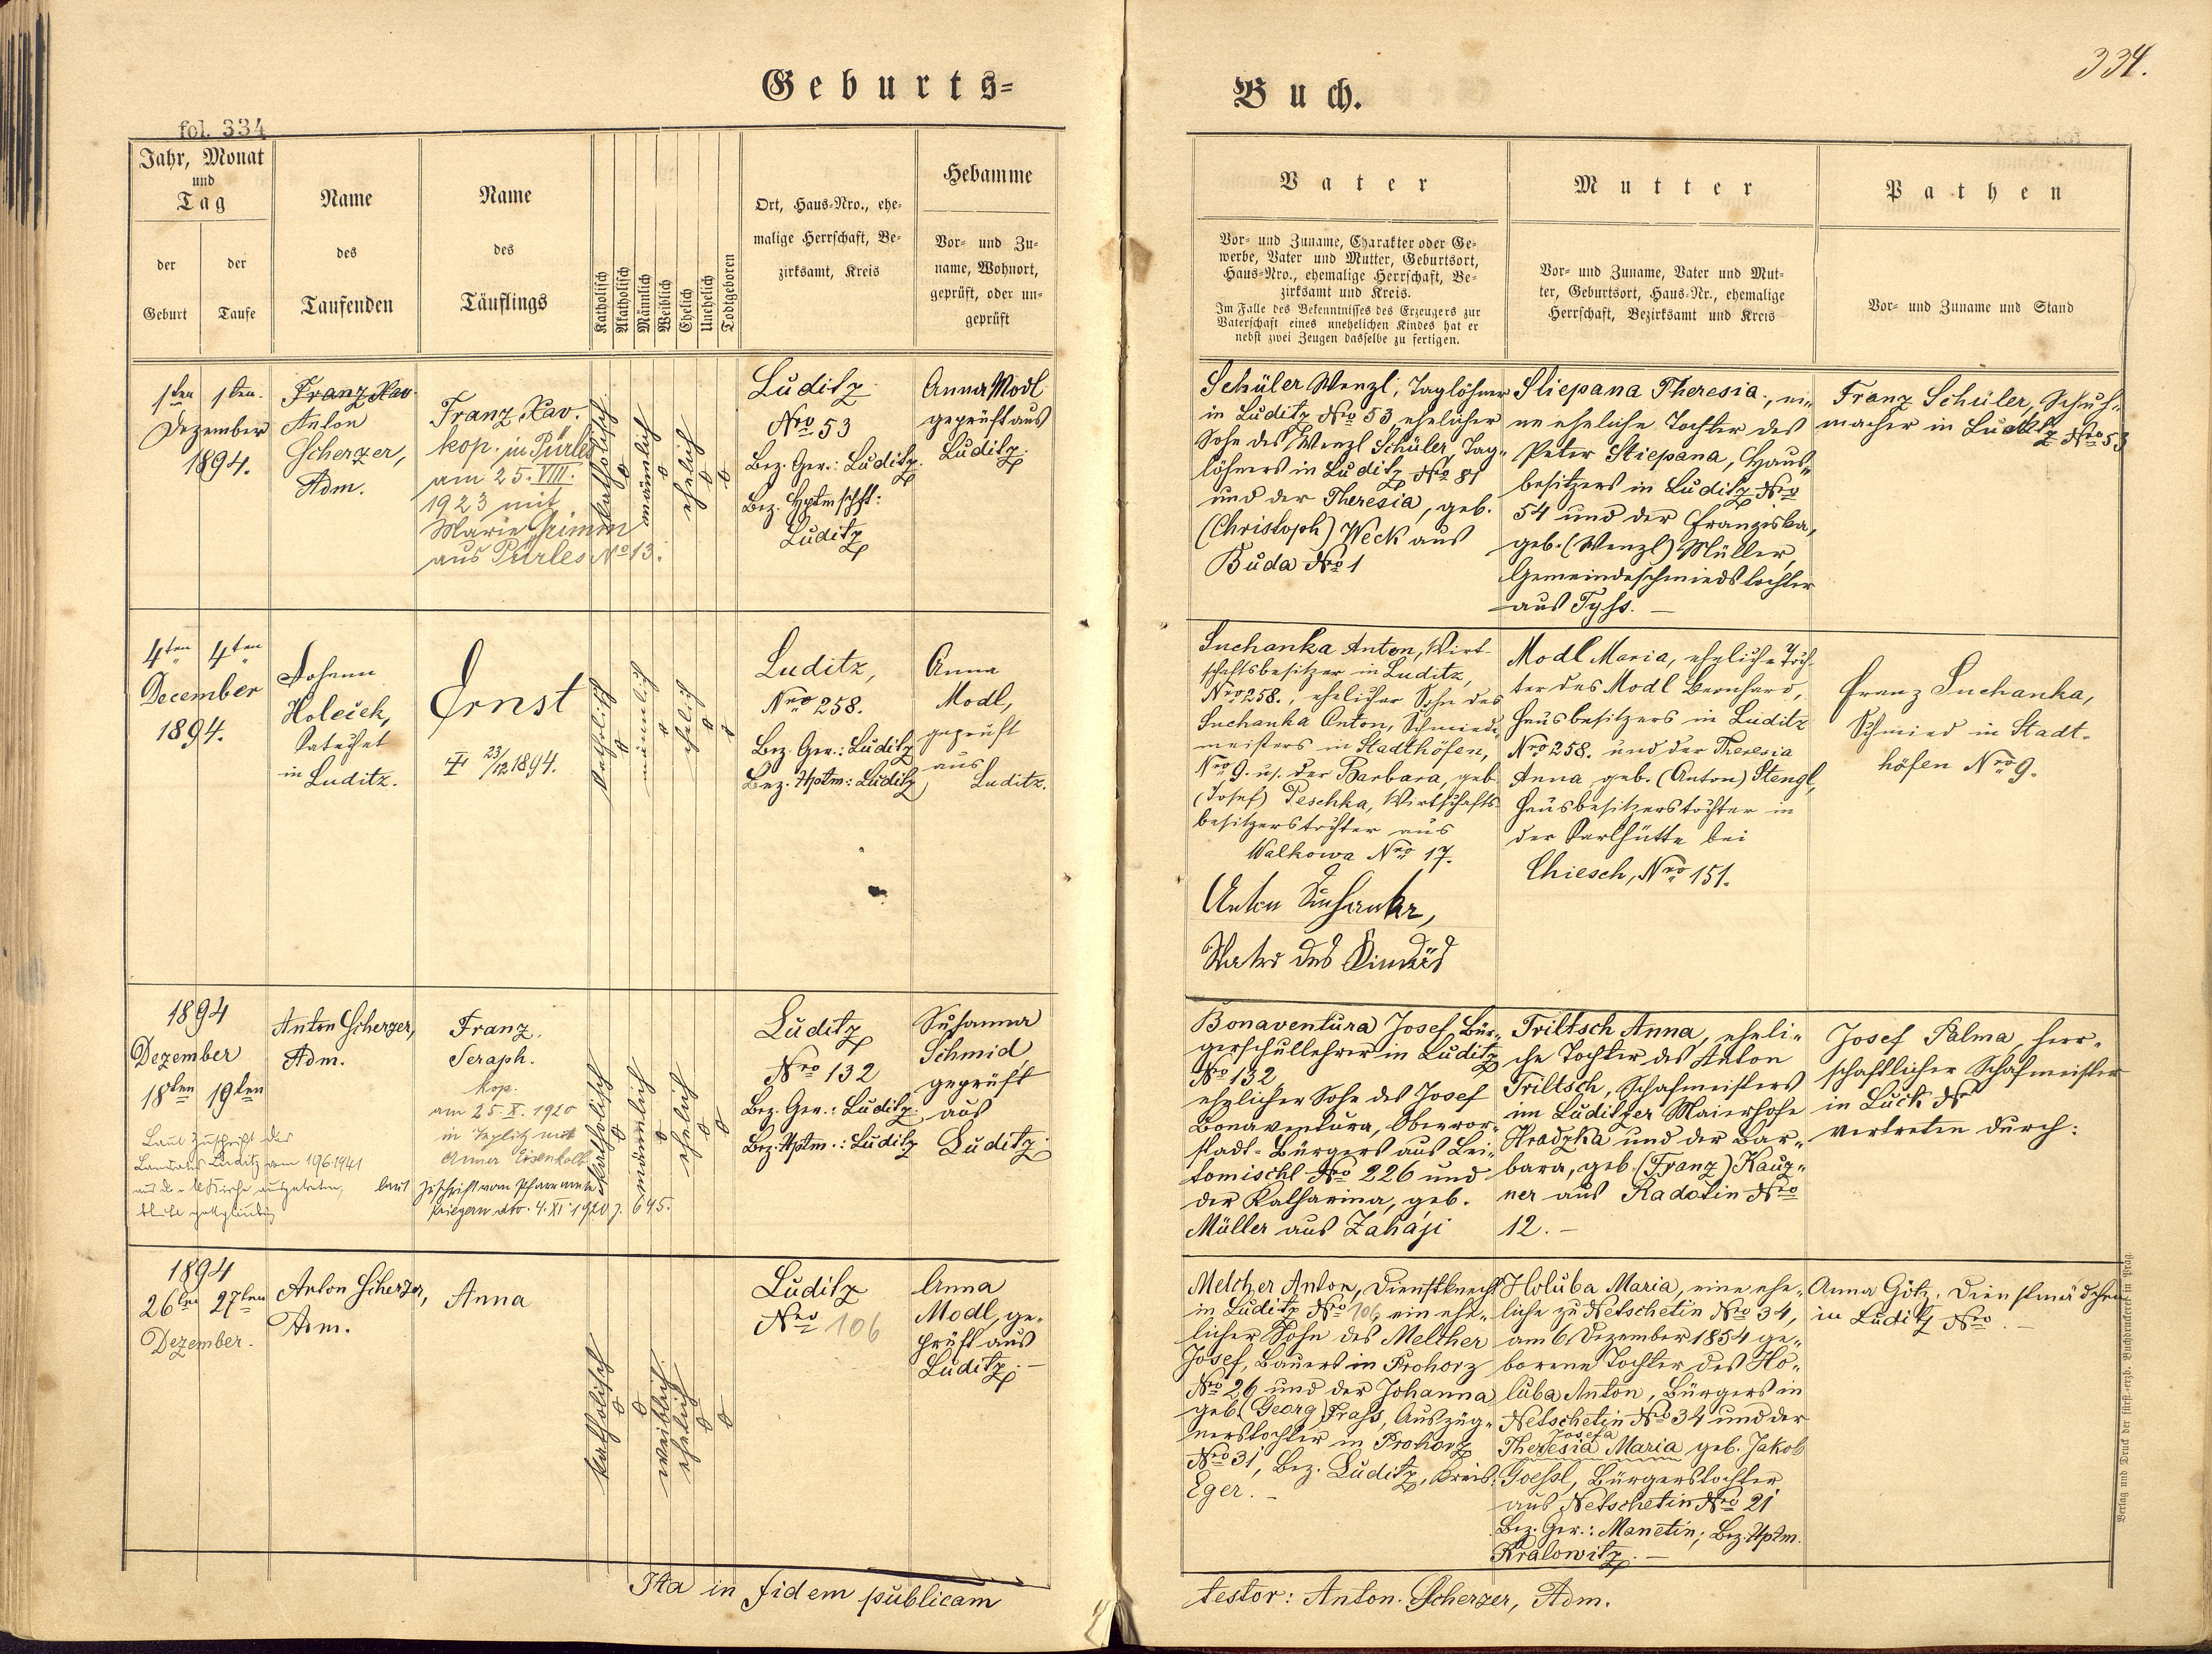 334.
Geburts=
Buch.
fol. 334
Jahr, Monat
und
Tag
der
Geburt
der
Taufe
Name
des
Taufenden
Name
des
Täuflings
Katholisch
Akatholisch
Männlich
Weiblich
Ehelich
Unehelich
Todtgeboren
Ort, Haus-Nro., ehe-
malige Herrschaft, Be-
zirksamt, Kreis
Hebamme
Vor- und Zu-
name, Wohnort,
geprüft, oder un-
geprüft
Vater
Vor- und Zuname, Charakter oder Ge-
werbe, Vater und Mutter, Geburtsort,
Haus-Nro., ehemalige Herrschaft, Be-
zirksamt und Kreis.
Im Falle des Bekenntnisses des Erzeugers zur
Vaterschaft eines unehelichen Kindes hat er
nebst zwei Zeugen dasselbe zu fertigen.
Mutter
Vor- und Zuname, Vater und Mut-
ter, Geburtsort, Haus-Nr., ehemalige
Herrschaft, Bezirksamt und Kreis
Pathen
Vor- und Zuname und Stand
1ten 1ten.
Dezember
1894.
Franz Xav.
Anton
Scherzer,
Adm.
Franz Xav.
kop. in Pürles
am 25. VIII.
1923 mit
Marie Grimm
aus Pürles No 13.
katholisch
o
männlich
o
ehelich
o
o
Luditz
Nro 53
Bez. Ger.: Luditz.
Bez. Hptmschft:
Luditz
Anna Modl
geprüft aus
Luditz.
Schüler Wenzl, Taglöhner
in Luditz Nro 53, ehelicher
Sohn des Wenzl Schüler, Tag-
löhners in Luditz Nro 81
und der Theresia, geb.
(Christoph) Weck aus
Buda Nro 1
Stiepana Theresia, ei-
ne eheliche Tochter des
Peter Stiepana, Haus-
besitzers in Luditz Nro
54 und der Franziska,
geb. (Wenzl) Müller,
Gemeindeschmiedstochter
aus Tyss. —
Franz Schüler, Schuh-
macher in Luditz Nro 53
4ten 4ten
December
1894.
Johann
Holeček,
Katechet
in
Luditz.
Ernst
† 23/12 1894.
katholisch
o
männlich
o
ehelich
o
o
Luditz,
Nro 258.
Bez. Ger.: Luditz
Bez. Hptm: Luditz
Anna
Modl,
geprüft
aus
Luditz.
Suchanka Anton, Wirt-
schaftsbesitzer in Luditz,
Nro 258., ehelicher Sohn des
Suchanka Anton, Schmiede-
meisters in Stadthöfen,
Nro 9. u. der Barbara, geb.
(Josef) Peschka, Wirtschafts-
besitzerstochter aus
Walkowa Nro 17.
Anton Suchanka,
Vater des Kindes
Modl Maria, eheliche Toch-
ter des Modl Bernhard,
Hausbesitzers in Luditz
Nro 258. und der Theresia
Anna, geb. (Anton) Stengl,
Hausbesitzerstochter in
der Karlhütte bei
Chiesch, Nro 151.
Franz Suchanka,
Schmied in Stadt-
höfen Nro 9.
1894
Dezember
18ten 19ten
Laut Zuschrift des
Landrates Luditz vom 19.6.1941
aus der k. Kirche ausgetreten,
bleibt gottgläubig
Anton Scherzer,
Adm.
Franz
Seraph.
kop.
am 25. X. 1920
in Teplitz mit
Anna Eisenkolb
laut Zuschrift vom Pfarramte
dto. 4. XI. 1920 z. 645.
katholisch
o
männlich
o
ehelich
o
o
Luditz
Nro 132
Bez. Ger.: Luditz
Bez. Hptm.: Luditz
Susanna
Schmid
geprüft
aus
Luditz
Bonaventura Josef, Bür-
gerschullehrer in Luditz
Nro 132,
ehelicher Sohn des Josef
Bonaventura, Obervor-
stadt-Bürgers aus Lei-
tomischl Nro 226 und
der Katharina, geb.
Müller aus Zahaji
Triltsch Anna, eheli-
che Tochter des Anton
Triltsch, Schafmeisters
im Luditzer Maierhofe
Hradzka und der Bar-
bara, geb. (Franz) Kauz-
ner aus Radotin Nro
12. —
Josef Palma, herr-
schaftlicher Schafmeister
in Luck Nr
vertreten durch:
1894
26ten 27ten
Dezember.
Anton Scherzer,
Adm.
Anna
katholisch
o
o
weiblich
ehelich
o
o
Luditz
Nro 106
Anna
Modl, ge-
prüft aus
Luditz. —
Melther Anton, Dienstknecht
in Luditz Nro 106, ein ehe-
licher Sohn des Melther
Josef, Bauers in Prohorz
Nro 26 und der Johanna
geb. (Georg) Prass, Auszüg-
nerstochter in Prohorz
Nro 31, Bez. Luditz, Kreis:
Eger. —
Holuba Maria, eine ehe-
liche zu Netschetin Nro 34,
am 6. Dezember 1854 ge-
borene Tochter des Ho-
luba Anton, Bürgers in
Netschetin Nro 34 und der
Josefa
Theresia Maria geb. Jakob
Goessl, Bürgerstochter
aus Netschetin Nro 21
Bez. Ger.: Manetin; Bez. Hptm.
Kralowitz. —
Anna Götz, Dienstmädchen
in Luditz Nro . —
Ita in fidem publicam
testor: Anton Scherzer, Adm.
Verlag und Druck der fürst.-erzb. Buchdruckerei in Prag.